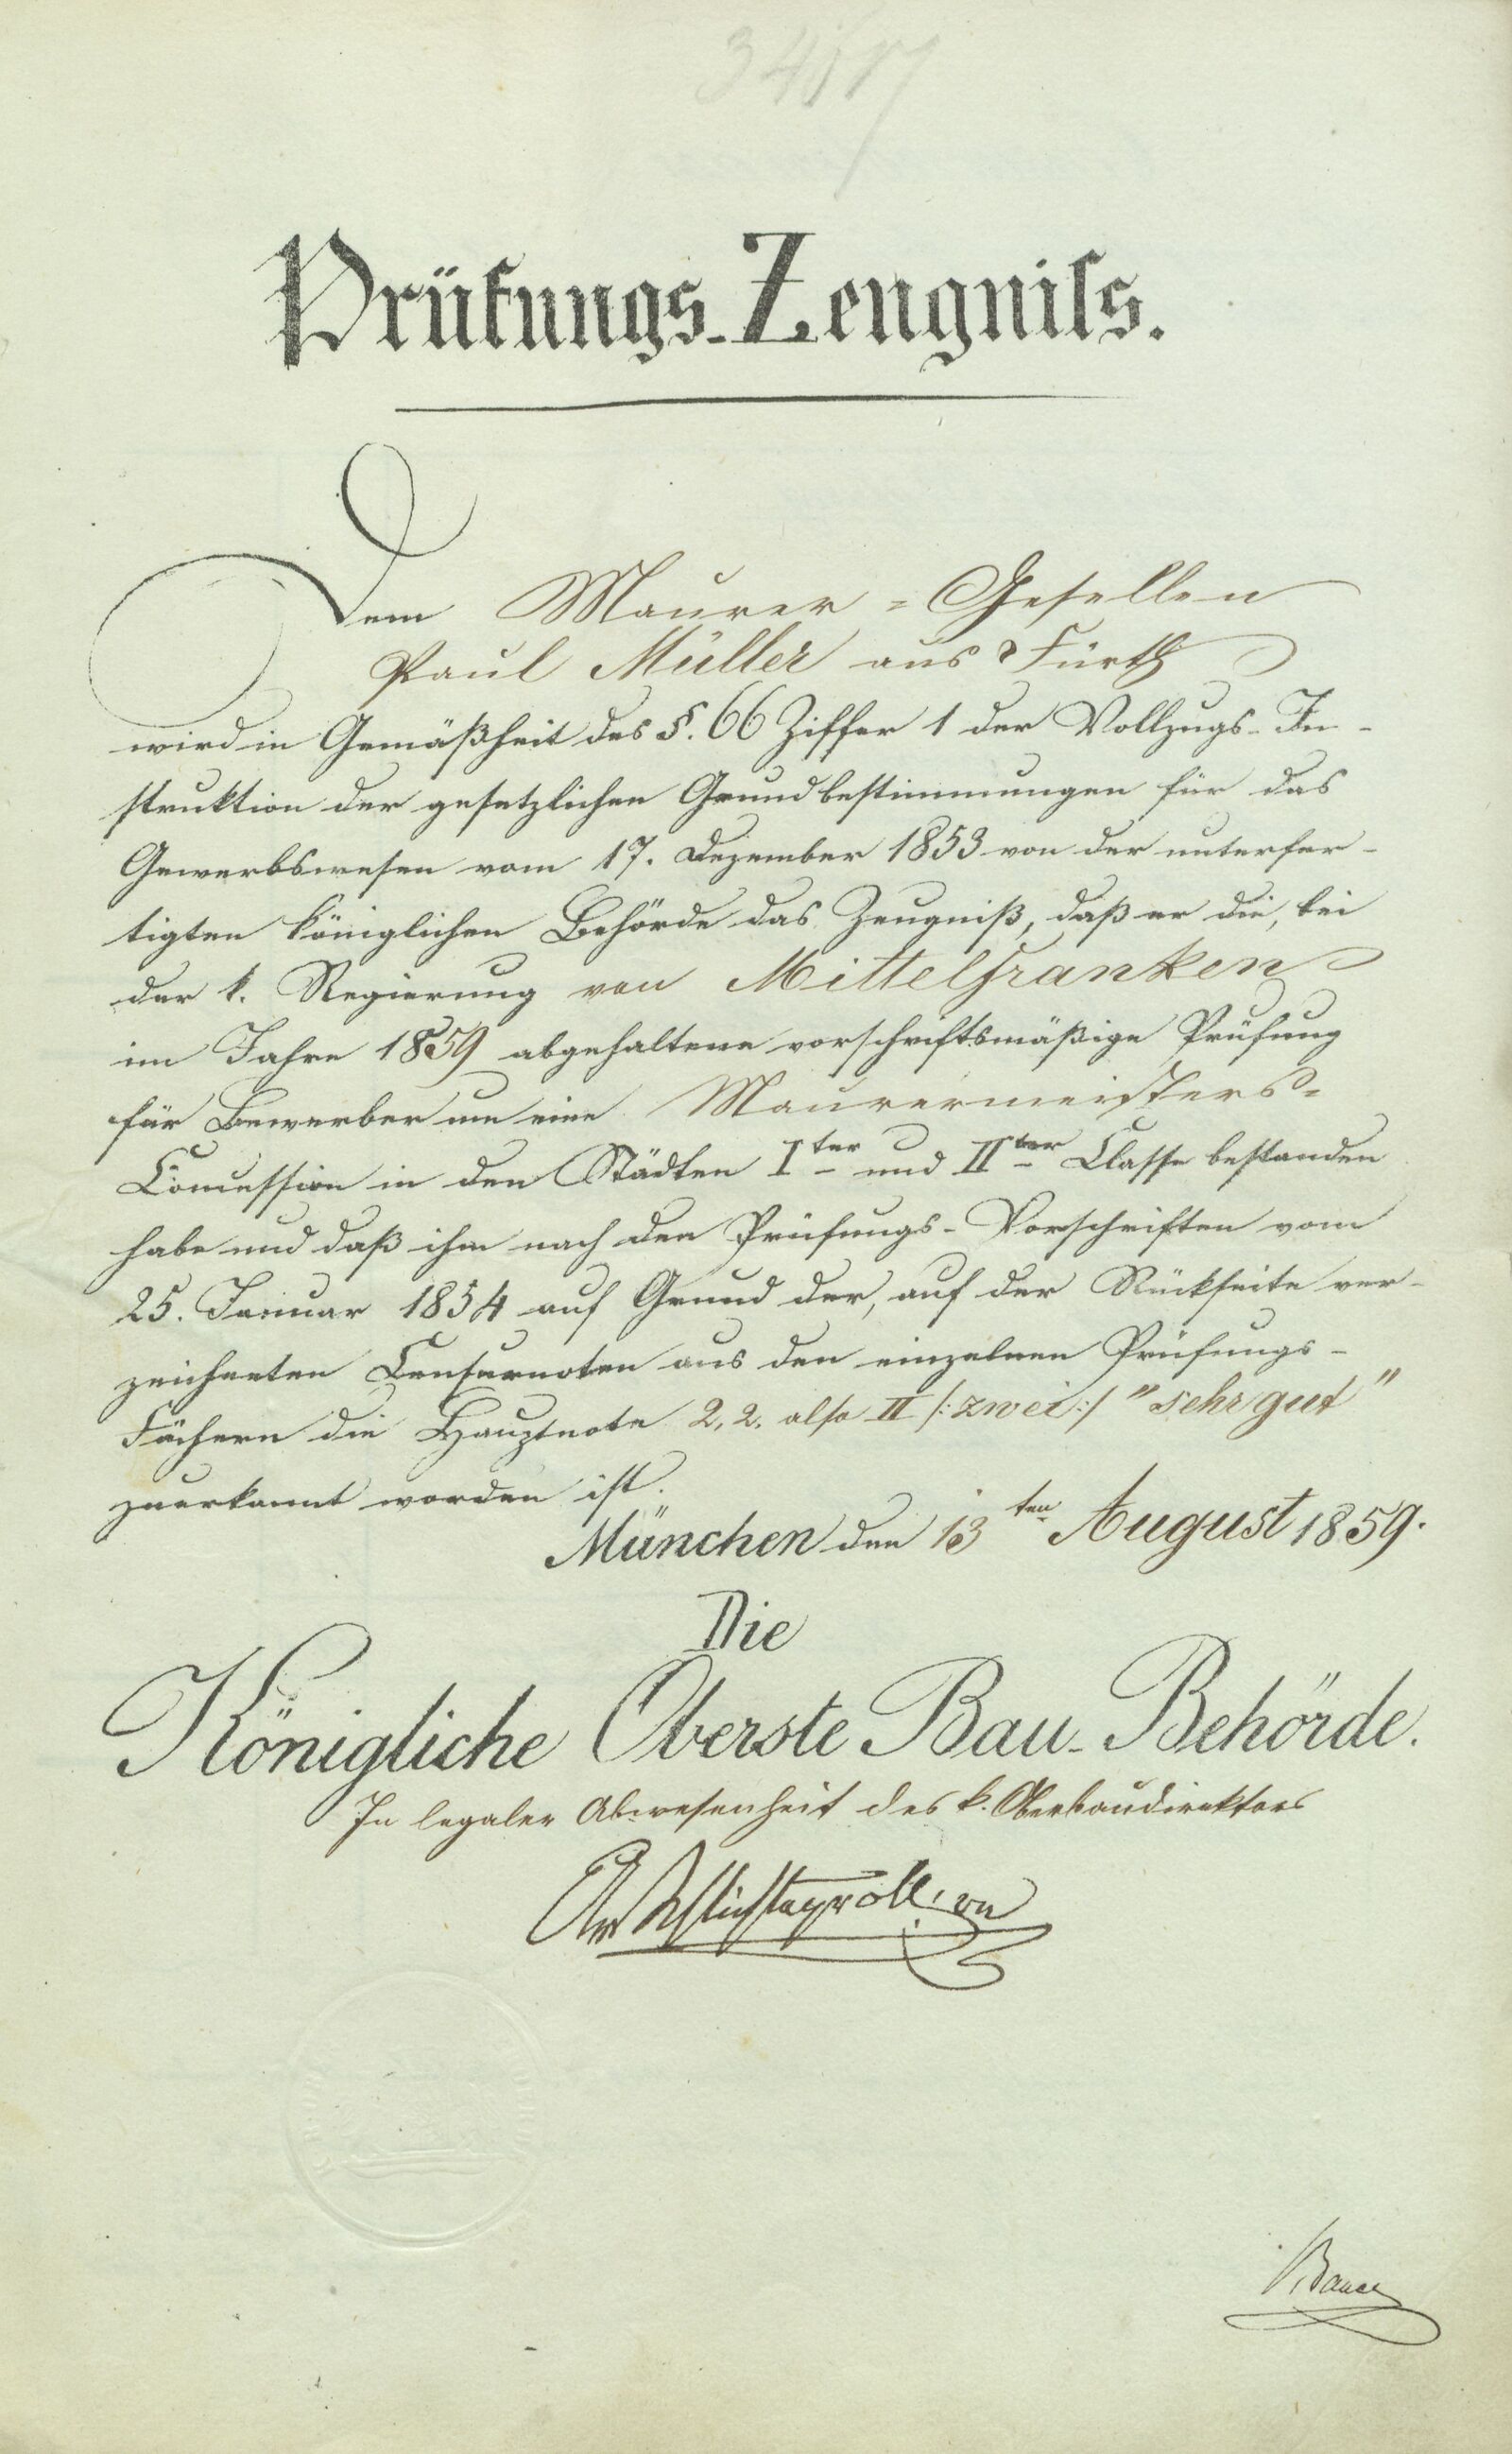 Prüfungs-Zeugniſs.
Dem Maurer-Gesellen
Paul Müller aus Fürth
wird in Gemäßheit des §. 66 Ziffer 1 der Vollzugs-In-
struktion der gesetzlichen Grundbestimmungen für das
Gewerbswesen vom 17. Dezember 1853 von der unterfer-
tigten königlichen Behörde das Zeugniß, daß er die, bei
der k. Regierung von Mittelfranken
im Jahre 1859 abgehaltene vorschriftsmäßige Prüfung
für Bewerber um eine Maurermeisters-
Concession in den Städten Iter und IIter Classe bestanden
habe und daß ihm nach den Prüfungs-Vorschriften vom
25. Januar 1854 auf Grund der, auf der Rückseite ver-
zeichneten Censurnoten aus den einzelnen Prüfungs-
Fächern die Hauptnote 2,2. also II /: zwei :/ "sehr gut"
zuerkannt worden ist.
München den 13ten August 1859.
Die
Königliche Oberste Bau-Behörde.
In legaler Abwesenheit des k. Oberbaudirektors
Schlichtegroll
Bauer